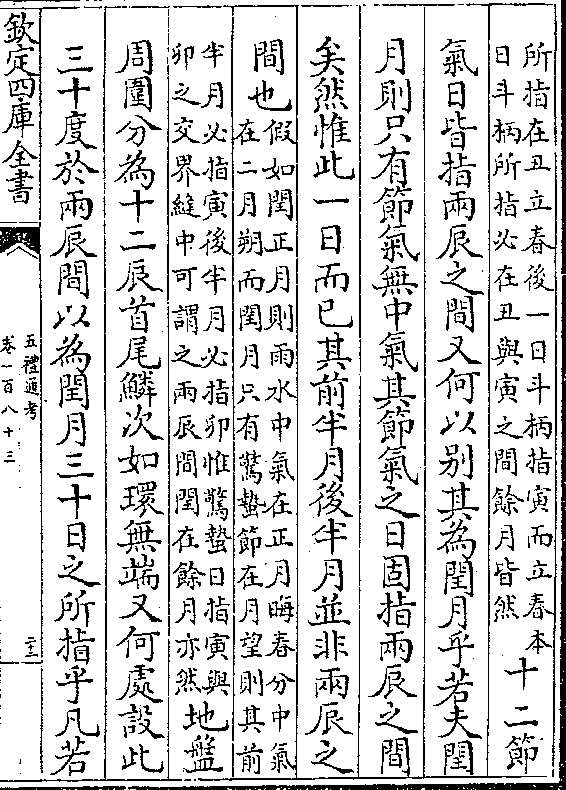 所指在丑立春後一日斗柄指寅而立春本
日斗柄所指必在丑與寅之間餘月皆然
十二節
氣日皆指兩辰之間又何以别其為閏月乎若夫閏
月則只有節氣無中氣其節氣之日固指兩辰之間
矣然惟此一日而已其前半月後半月並非兩辰之
間也
假如閏正月則雨水中氣在正月晦春分中氣
在二月朔而閏月只有驚蟄節在月望則其前
半月必指寅後半月必指卯惟驚蟄日指寅與
卯之交界縫中可謂之兩辰間閏在餘月亦然
地盤
周圍分為十二辰首尾鱗次如環無端又何處設此
三十度於兩辰間以為閏月三十日之所指乎凡若
欽定四庫全書
五禮通考
卷一百八十三